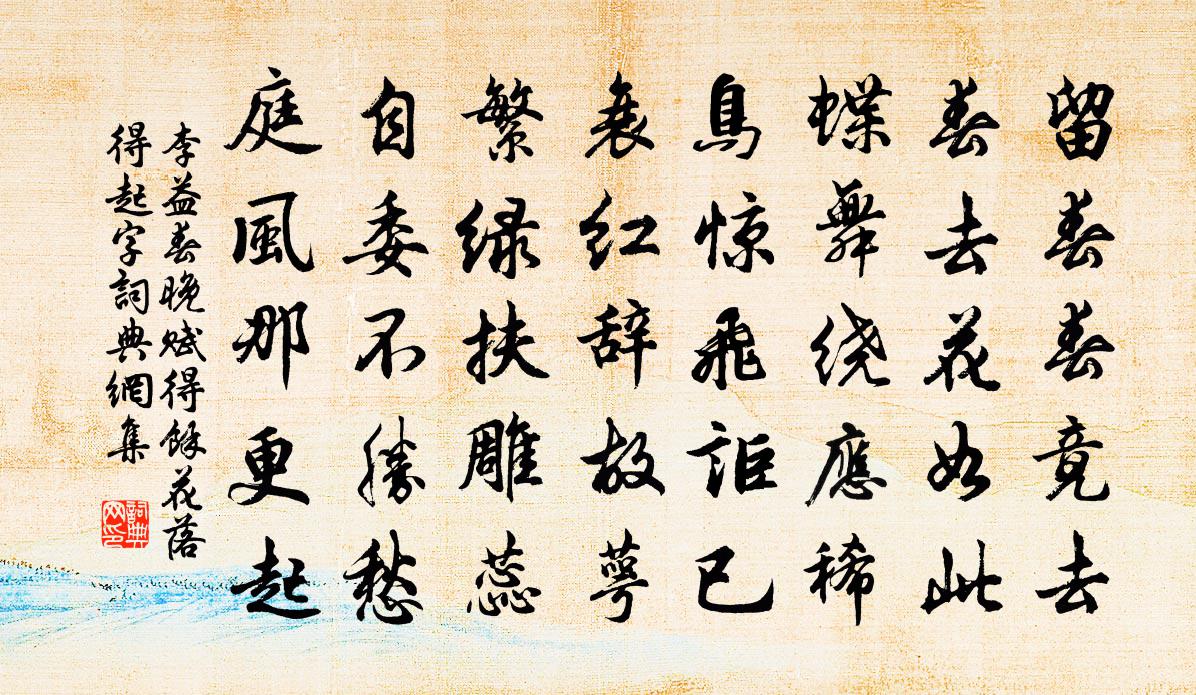 留春春竟去
春去花如此
蝶舞绕應稀
鳥惊飛詎已
衰红辞故萼
繁绿扶雕蕊
自委不勝愁
庭風那更起
李益春晚赋得餘花落
得起字詞典網集
詞典网印